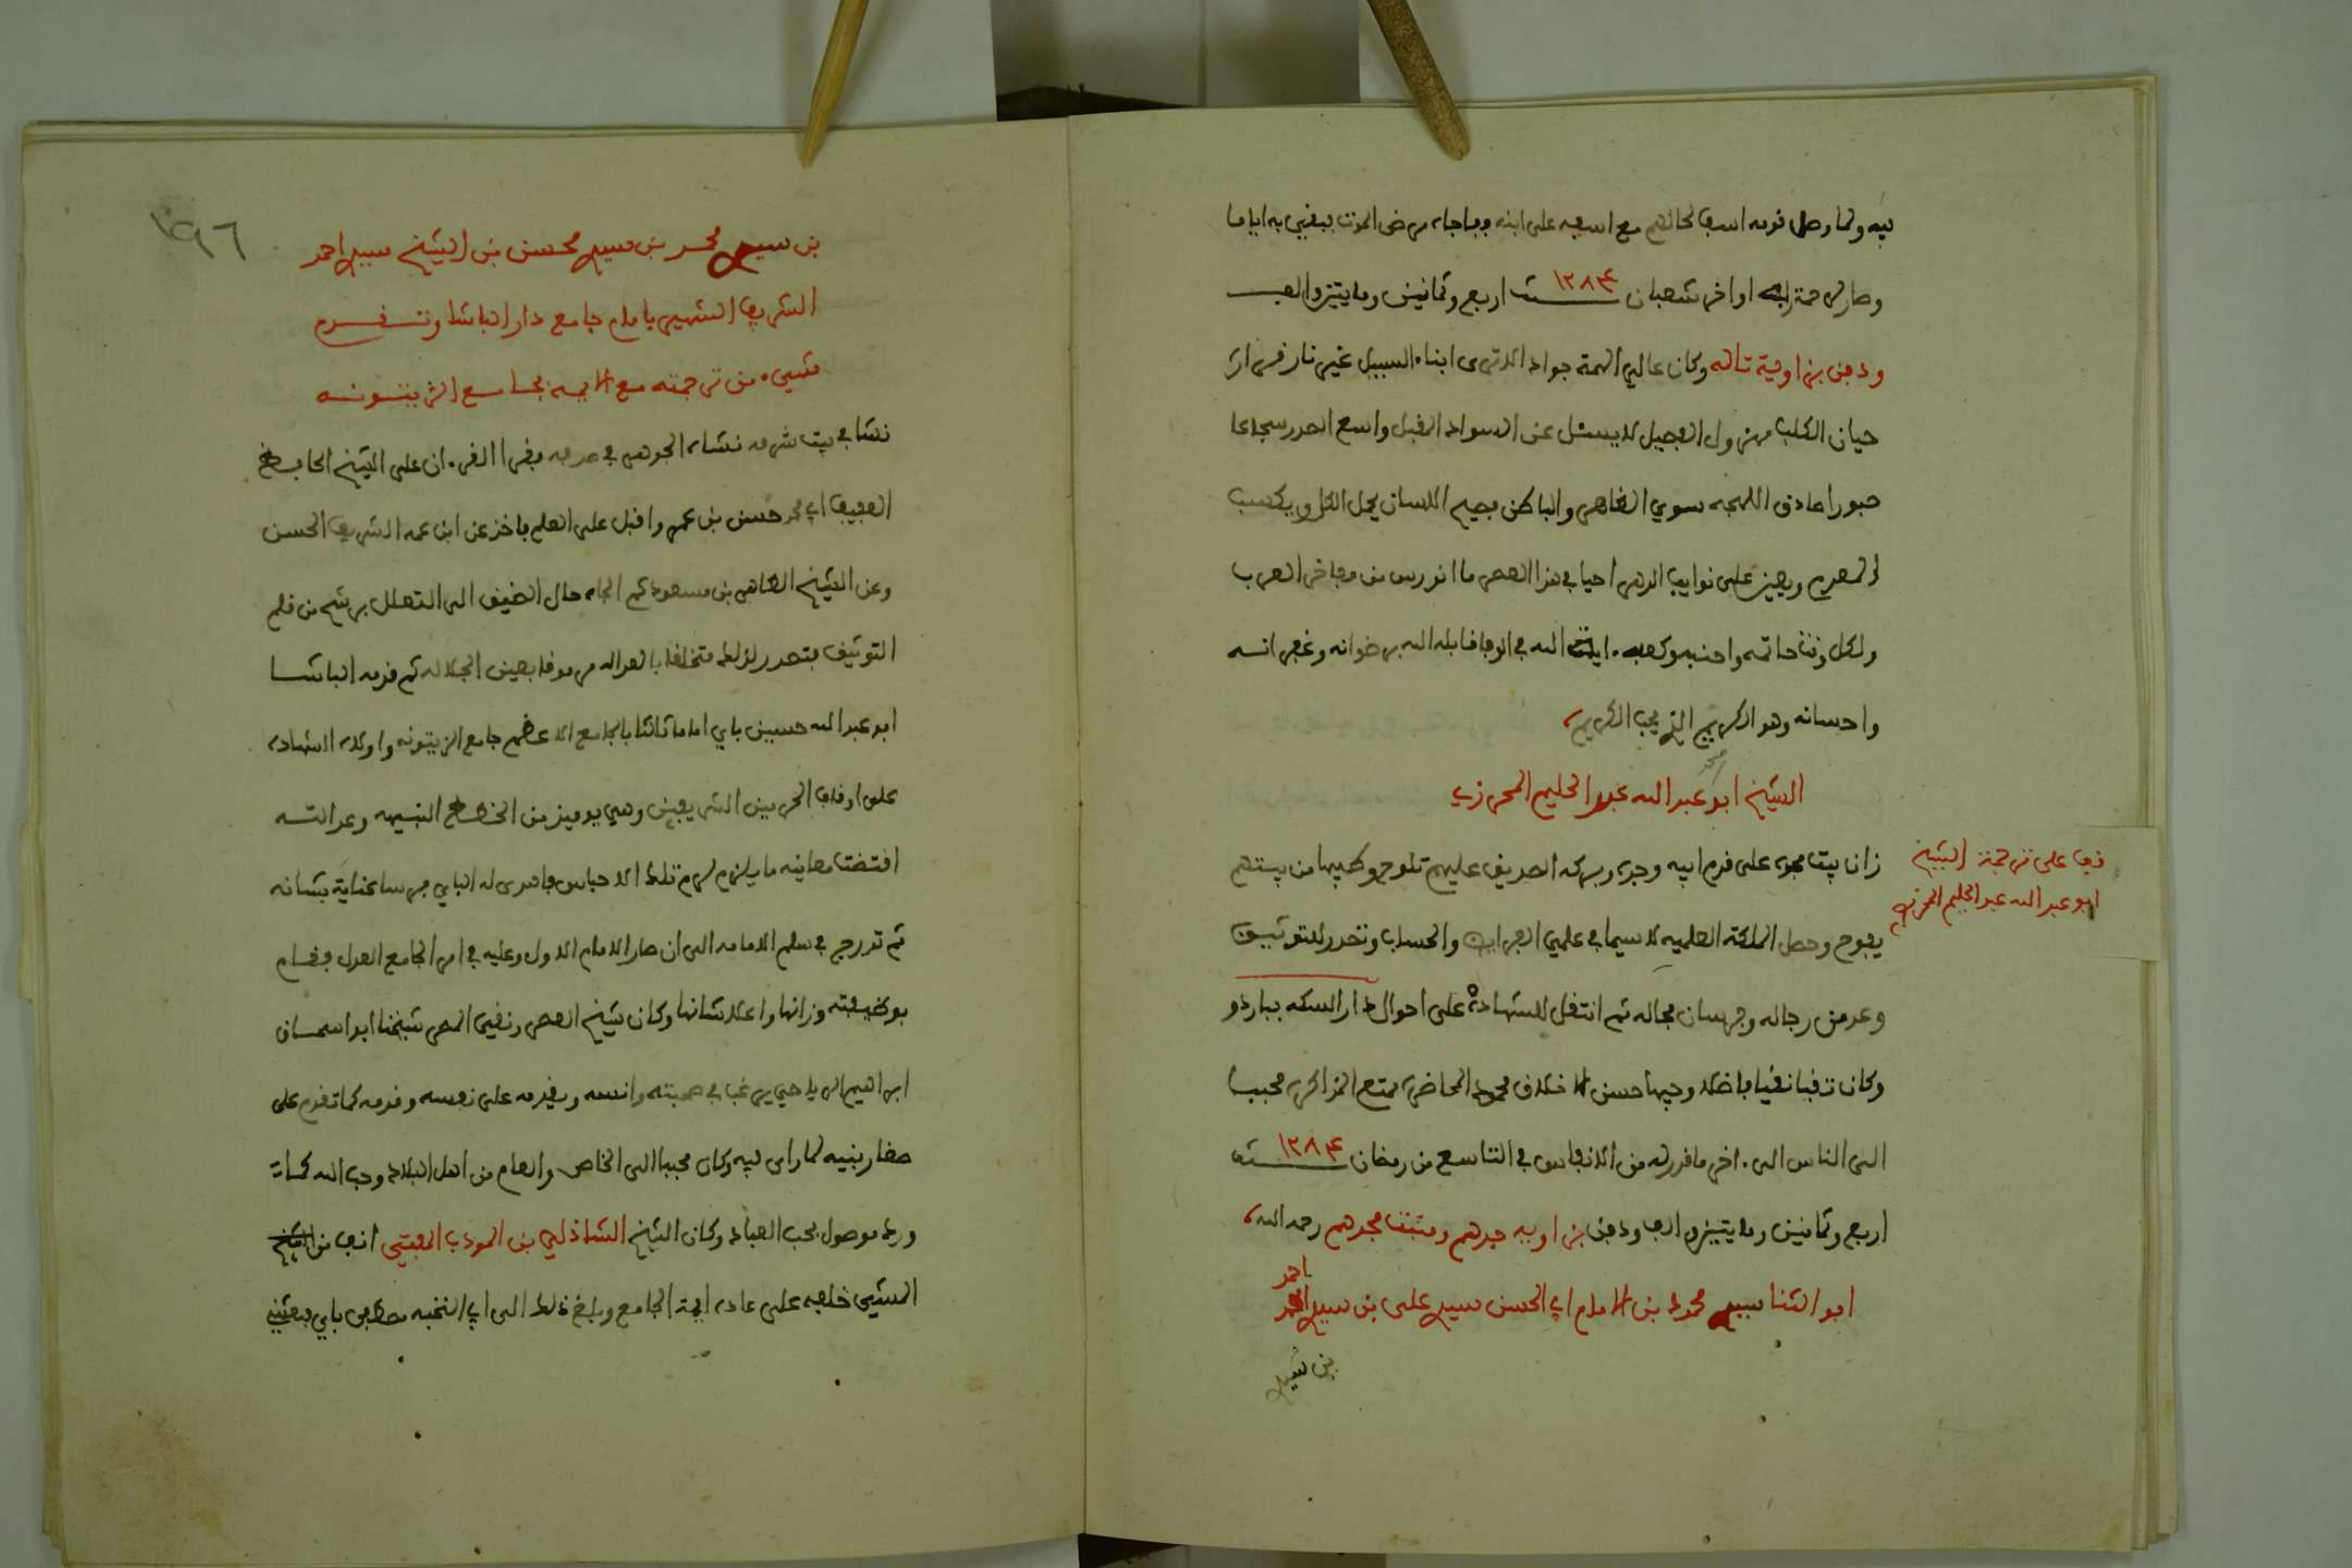 فيه ولما وصل قومه اسف لحالهم مع اسفه على ابنه وفاجاه مرض الموت فبقي به اياما
وصار لرحمة ربه اواخر شعبان سنة ١٢٨٤ اربع وثمانين ومايتين والف
ودفن بزاوية تاله وكان عالي الهمة جوادا لا ترى ابناء السبيل غير ناره قرارا
جبان الكلب مهزول الفصيل لا يسئل عن السواد المقبل واسع الصدر شجاعا
صبورا صادق اللهجه سوي الظاهر والباطن فصيح اللسان يحمل الكل ويكسب
المعدم ويعين على نوايب الدهر احيا في هذا العصر ما اندرس من مفاخر العرب
ولكل وقت حاتمه واحنفه وكعبه ايته الله في الوفا قابله الله برضوانه وغفرانه
واحسانه وهو الكريم الذي يحب الكريم
الشيخ ابو عبد الله محمد عبد الحليم المحرزي
زان بيت مجده على قدم ابيه وجده وبركه الصديق عليهم تلوح وطيبها من بيتهم
يفوح وحصل الملكة العلميه لا سيما في علمي الفرايض والحساب وتصدر للتوثيق
وعد من رجاله وفرسان مجاله ثم انتقل للشهادة على احوال دار السكه بباردو
وكان تقيا نقيا فاضلا وجيها حسن الاخلاق محمود المحاضره ممتع المذاكره محببا
الى الناس الى اخر ما قدر له من الانفاس في التاسع من رمضان سنة ١٢٨٤
اربع وثمانين ومايتين والف ودفن بزاويه جدهم ومنبت مجدهم رحمه الله
ابو الثنا سيدي محمود بن الامام ابي الحسن سيدي علي بن سيدي احمد
احمد
بن سيدي
قف على ترجمة الشيخ
ابو عبد الله عبد الحليم المحرزي
١٩٦
بن سيدي محمد بن سيدي محسن بن الشيخ سيدي احمد
الشريف الشهير بامام جامع دار الباشا وتقدم
شيء من ترجمته مع الايمه بجامع الزيتونه
نشا في بيت شرفه نشاه الجوهر في صدفه وقرا القران على الشيخ الحافظ
العفيف ابي محمد حسن بن عمر واقبل على العلم فاخذ عن ابن عمه الشريف الحسن
وعن الشيخ الطاهر بن مسعود ثم الجاه حال الضيق الى التعلل برشح من قلم
التوثيق فتصدر لذلك متخلقا بالعداله مرموقا بعين الجلاله ثم قدمه الباشا
ابو عبد الله حسين باي اماما ثالثا بالجامع الاعظم جامع الزيتونه واولاه الشهاده
على اوقاف الحرمين الشريفين وهي يوميذ من الخطط النبيهه وعدالته
اقتضت معاينه ما يلزم لرم تلك الاحباس فاهدى له الباي فرسا عناية بشانه
ثم تدرج في سلم الامامه الى ان صار الامام الاول وعليه في امر الجامع المعول فقام
بوظيفته وزانها واعلا شانها وكان شيخ العصر ونقي المصر شيخنا ابو اسحاق
ابراهيم الرياحي يرغب في صحبته وانسه ويقدمه على نفسه وقدمه كما تقدم على
صغار بنيه لما راى فيه وكان محببا الى الخاص والعام من اهل البلاد وحب الله كما
ورد موصول بحب العباد وكان الشيخ الشاذلي بن المودب المفتي انف من
المشي خلفه على عاده ايمة الجامع وبلغ ذلك الى ابي النخبه مصطفى باي فبعثني